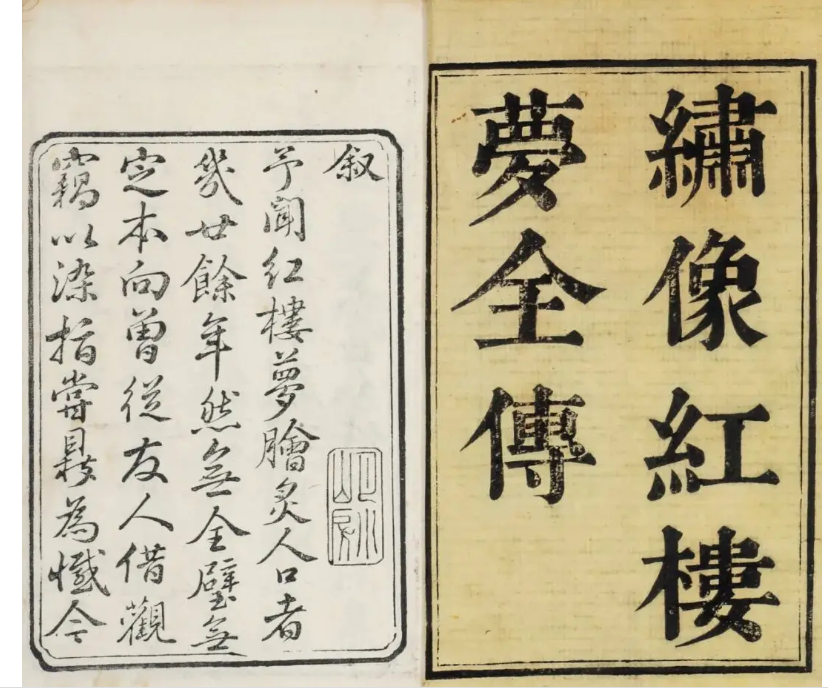 繡像紅樓
夢全傳
叙
予聞紅樓夢膾炙人口者
幾廿餘年然無全璧無
定本向曾從友人借觀
竊以染指嘗鼎為憾今